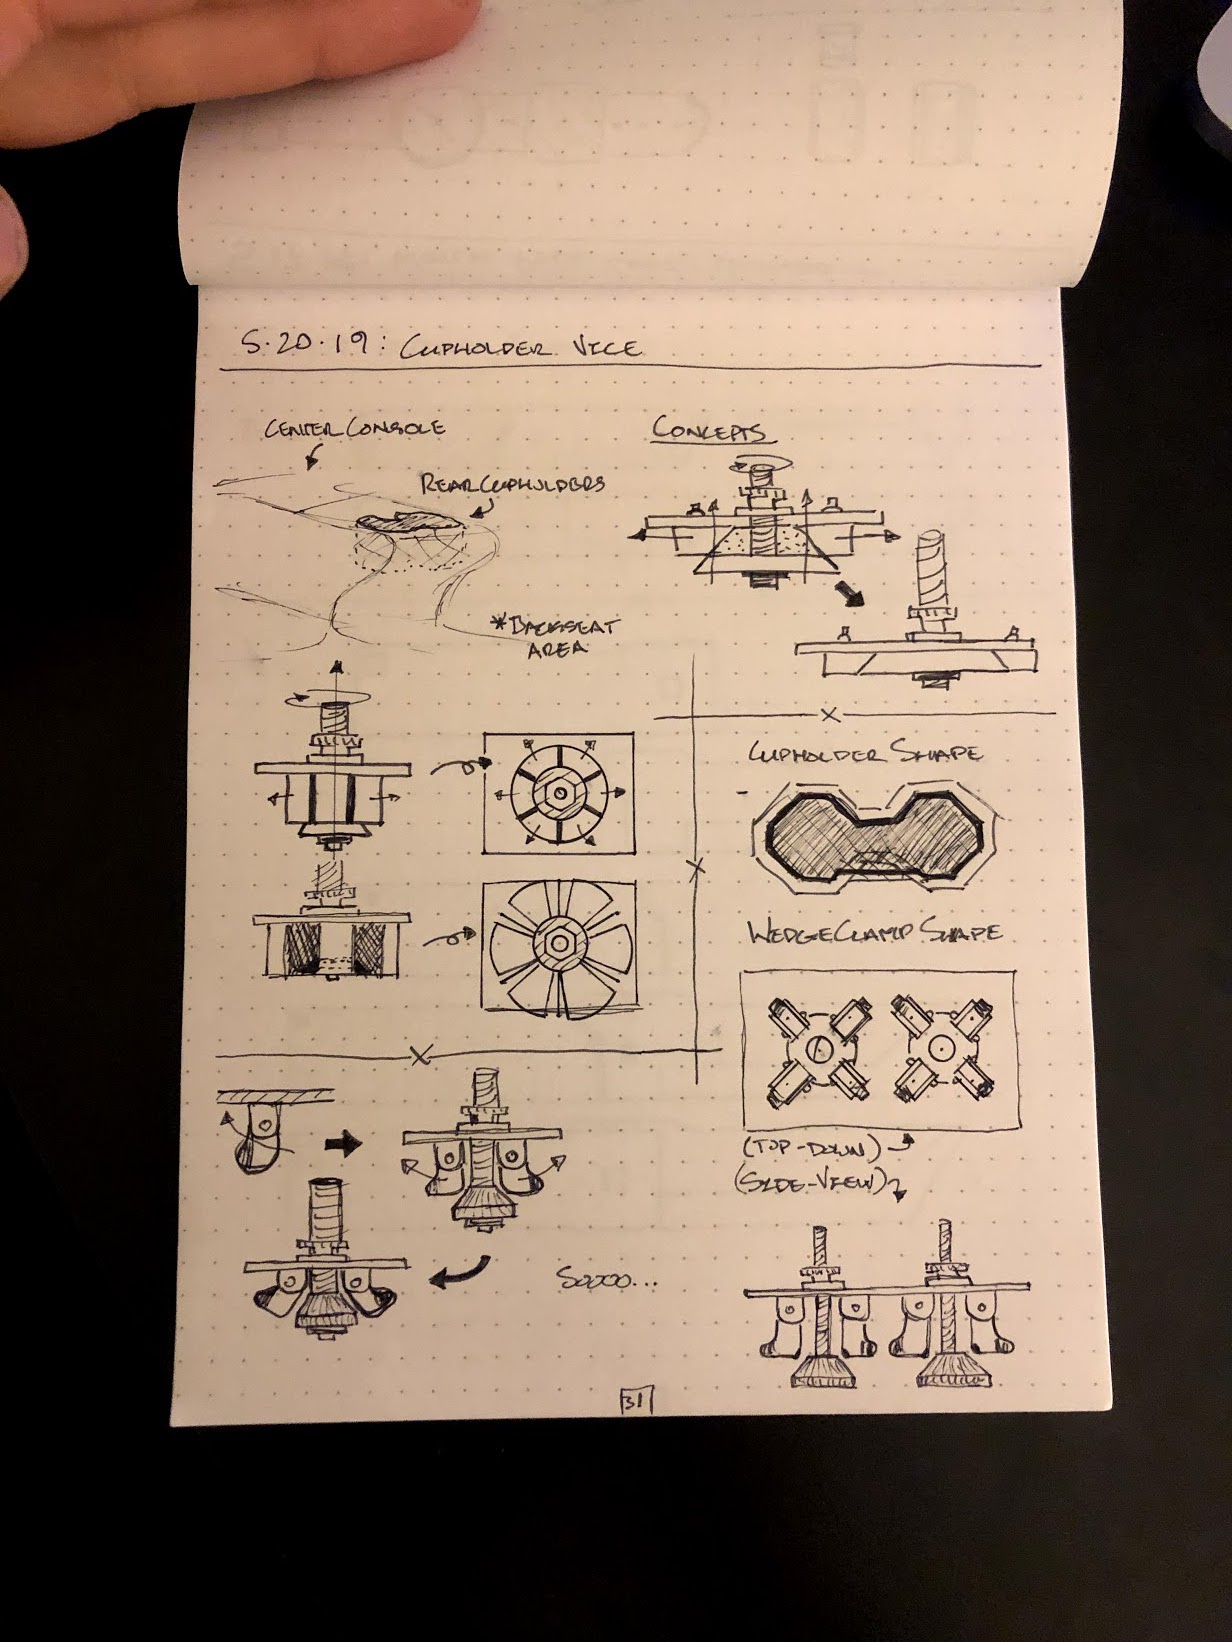 5.20.19: CUPHOLDER VICE
CENTER CONSOLE
REAR CUPHOLDERS
*BACKSEAT
AREA
CONCEPTS
CUPHOLDER SHAPE
WEDGE CLAMP SHAPE
(TOP-DOWN)
(SIDE-VIEW)
SOOOO...
31